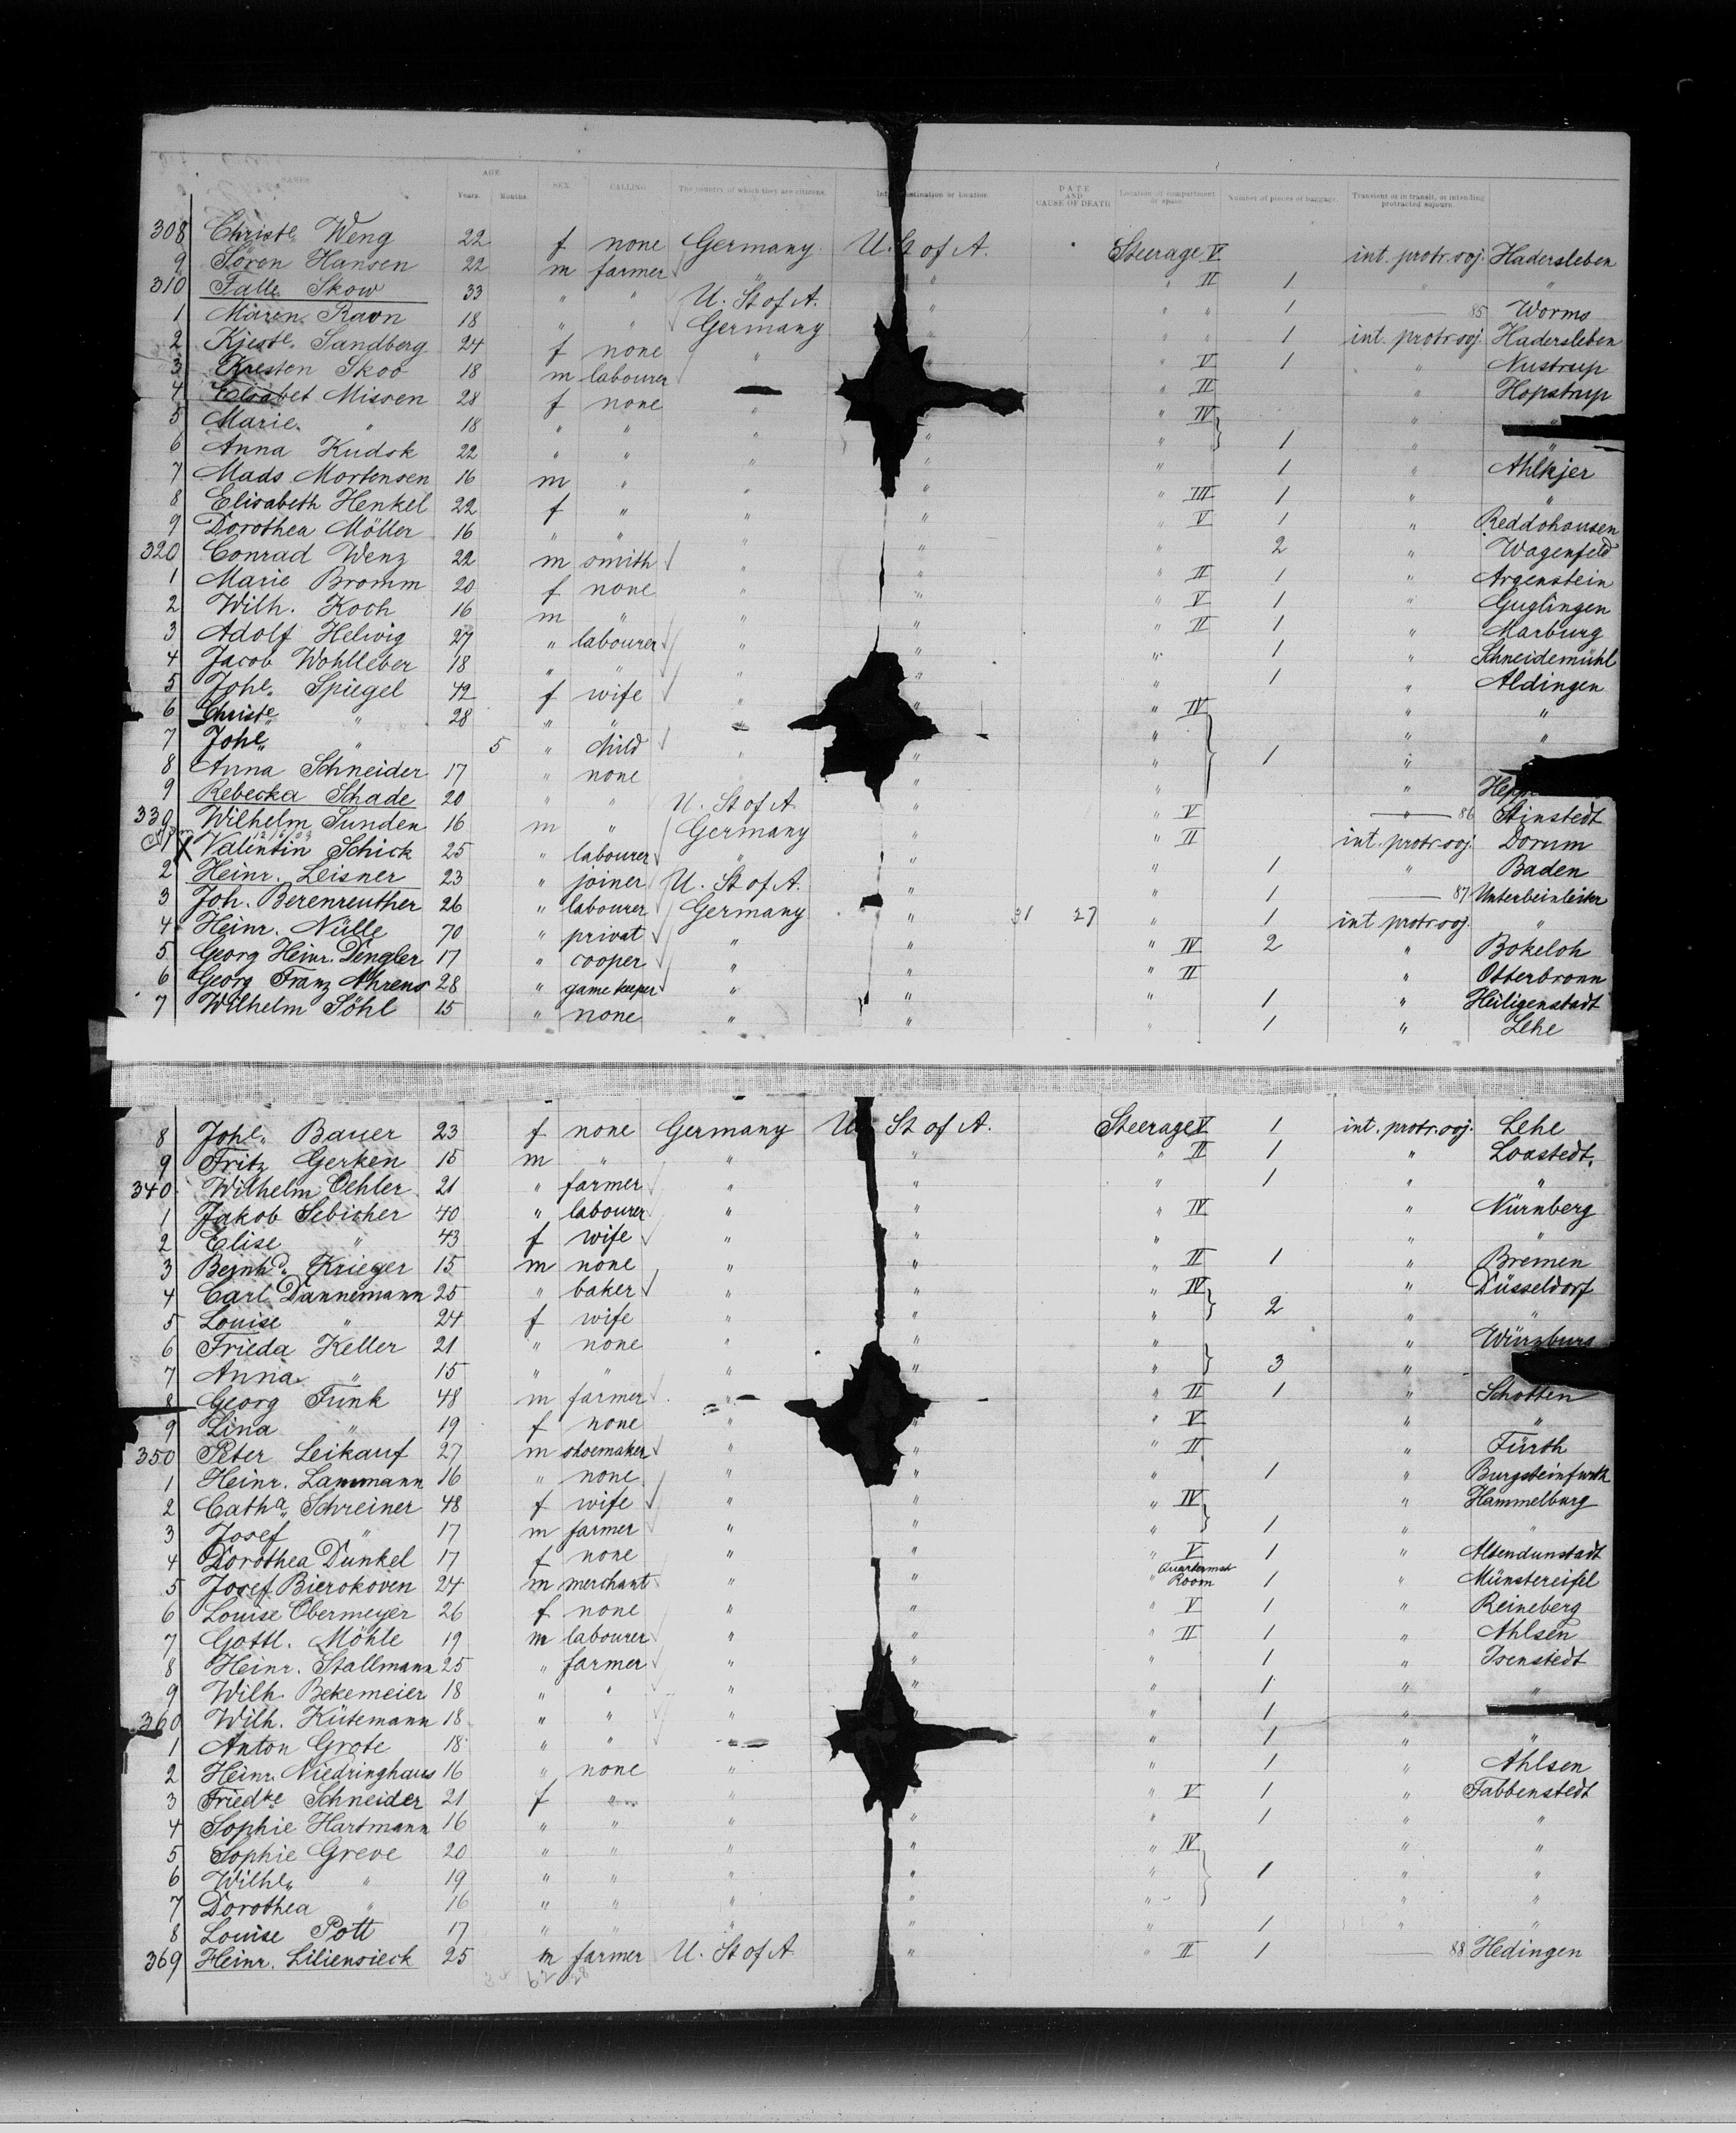 NAMES. AGE. Years. Months. SEX. CALLING. The country of which they are citizens. Intended destination or location. DATE AND CAUSE OF DEATH. Location of compartment or space. Number of pieces of baggage. Transient or in transit, or intending protracted sojourn.
308 Christe. Weng 22 f none Germany U. St of A. Steerage V int. protr. soj. Hadersleben
9 Sören Hansen 22 m farmer " " " II 1 " "
310 Falle Skow 33 " " U. St of A. " " " 1 85 Worms
1 Maren Ravn 18 " " Germany " " " 1 int. protr. soj. Hadersleben
2 Kjeste. Sandberg 24 f none " " V 1 " Nustrup
3 Kresten Skov 18 m labourer " II " Hopstrup
4 Elisabet Missen 28 f none " " IV " "
5 Marie " 18 " " " " " 1 " "
6 Anna Kudsk 22 " " " " " 1 " Ahlkjer
7 Mads Mortensen 16 m " " " " III 1 " "
8 Elisabeth Henkel 22 f " " " " V 1 " Reddehausen
9 Dorothea Möller 16 " " " " " 2 " Wagenfeld
320 Conrad Wenz 22 m smith " " " II 1 " Argenstein
1 Marie Bromm 20 f none " " " V 1 " Guglingen
2 Wilh. Koch 16 m " " " " II 1 " Marburg
3 Adolf Helwig 27 " labourer " " " 1 " Schneidemühl
4 Jacob Wohlleber 18 " " " " " 1 " Aldingen
5 Johe. Spiegel 42 f wife " " " IV " "
6 Christe " 28 " " " " " "
7 Johe. " 5 " child " " " 1 "
8 Anna Schneider 17 " none " " "
9 Rebecka Schade 20 " " U. St of A. " " V " 86 Stinstedt
330 Wilhelm Sunden 16 m " Germany " " II int. protr. soj. Dorum
1 X Valentin Schick 25 " labourer " " " 1 " Baden
2 Heinr. Leisner 23 " joiner U. St of A. " " 1 87 Unterleinleiter
3 Joh. Berenreuther 26 " labourer Germany " 31 27 " 1 int. protr. soj. "
4 Heinr. Nülle 70 " privat " " " IV 2 " Bokeloh
5 Georg Heinr. Dengler 17 " cooper " " " II " Otterbronn
6 Georg Franz Ahrens 28 " game keeper " " " 1 " Heiligenstadt
7 Wilhelm Söhl 15 " none " " " 1 " Lehe
8 Johe. Bauer 23 f none Germany U. St of A. Steerage V 1 int. protr. soj. Lehe
9 Fritz Gerken 15 m " " " " II 1 " Loxstedt.
340 Wilhelm Oehler 21 " farmer " " " 1 " "
1 Jakob Sebicher 40 " labourer " " " IV " Nürnberg
2 Elise " 43 f wife " " " " "
3 Bernhd. Krieger 15 m none " " " II 1 " Bremen
4 Carl Dannemann 25 " baker " " " IV 2 " Düsseldorf
5 Louise " 24 f wife " " " " "
6 Frieda Keller 21 " none " " " 3 " Würzburg
7 Anna " 15 " " " " " "
8 Georg Funk 48 m farmer " " II 1 " Schotten
9 Lina " 19 f none " " " V " "
350 Peter Leikauf 27 m shoemaker " " " II " Fürth
1 Heinr. Lammann 16 " none " " " 1 " Burgsteinfurth
2 Catha. Schreiner 48 f wife " " " IV 1 " Hammelburg
3 Josef " 17 m farmer " " " " "
4 Dorothea Dunkel 17 f none " " " V 1 " Altendunstadt
5 Josef Bierokoven 24 m merchant " " " Quartermst Room 1 " Münstereifel
6 Louise Obermeyer 26 f none " " " V 1 " Reineberg
7 Gottl. Möhle 19 m labourer " " " II 1 " Ahlsen
8 Heinr. Stallmann 25 " farmer " " " 1 " Isenstedt
9 Wilh. Bekemeier 18 " " " " " 1 " "
360 Wilh. Kütemann 18 " " " " 1 "
1 Anton Grote 18 " " " " 1 " "
2 Heinr. Niedringhaus 16 " none " " " 1 " Ahlsen
3 Friedke Schneider 21 f " " " " V 1 " Fabbenstedt
4 Sophie Hartmann 16 " " " " " 1 " "
5 Sophie Greve 20 " " " " " IV 1 " "
6 Wilhe. " 19 " " " " " " "
7 Dorothea " 16 " " " " " " "
8 Louise Pott 17 " " " " " 1 " "
369 Heinr. Liliensieck 25 m farmer U. St of A. " " II 1 88 Hedingen